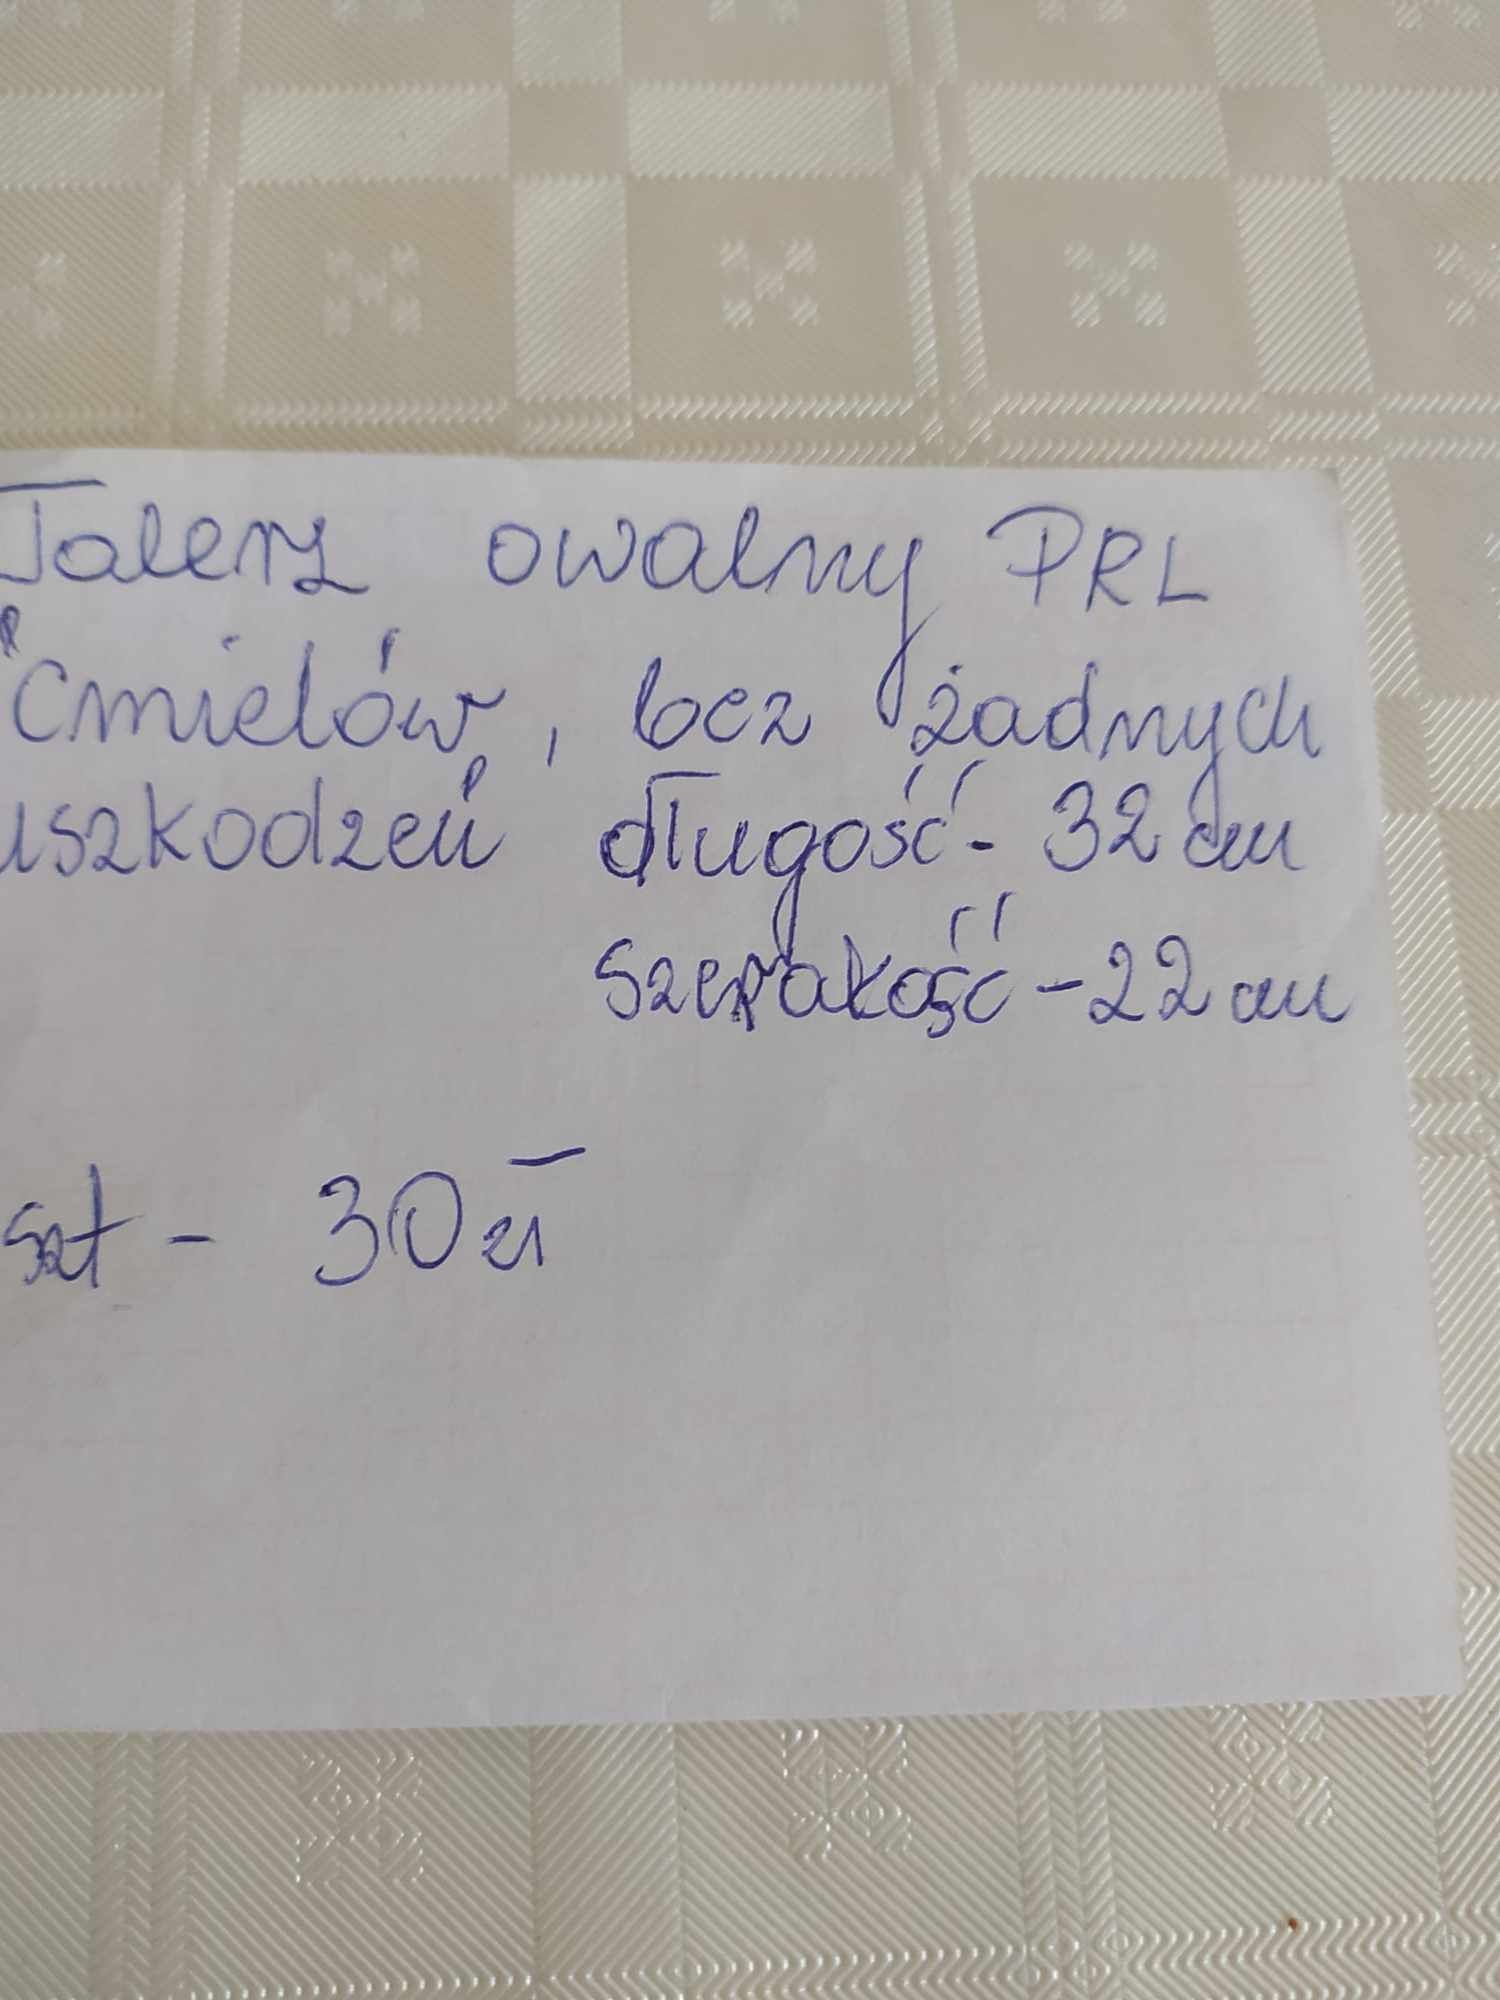 Talerz owalny PRL
Ćmielów, bez żadnych
uszkodzeń długość - 32 cm
szerokość - 22 cm
szt - 30 zł